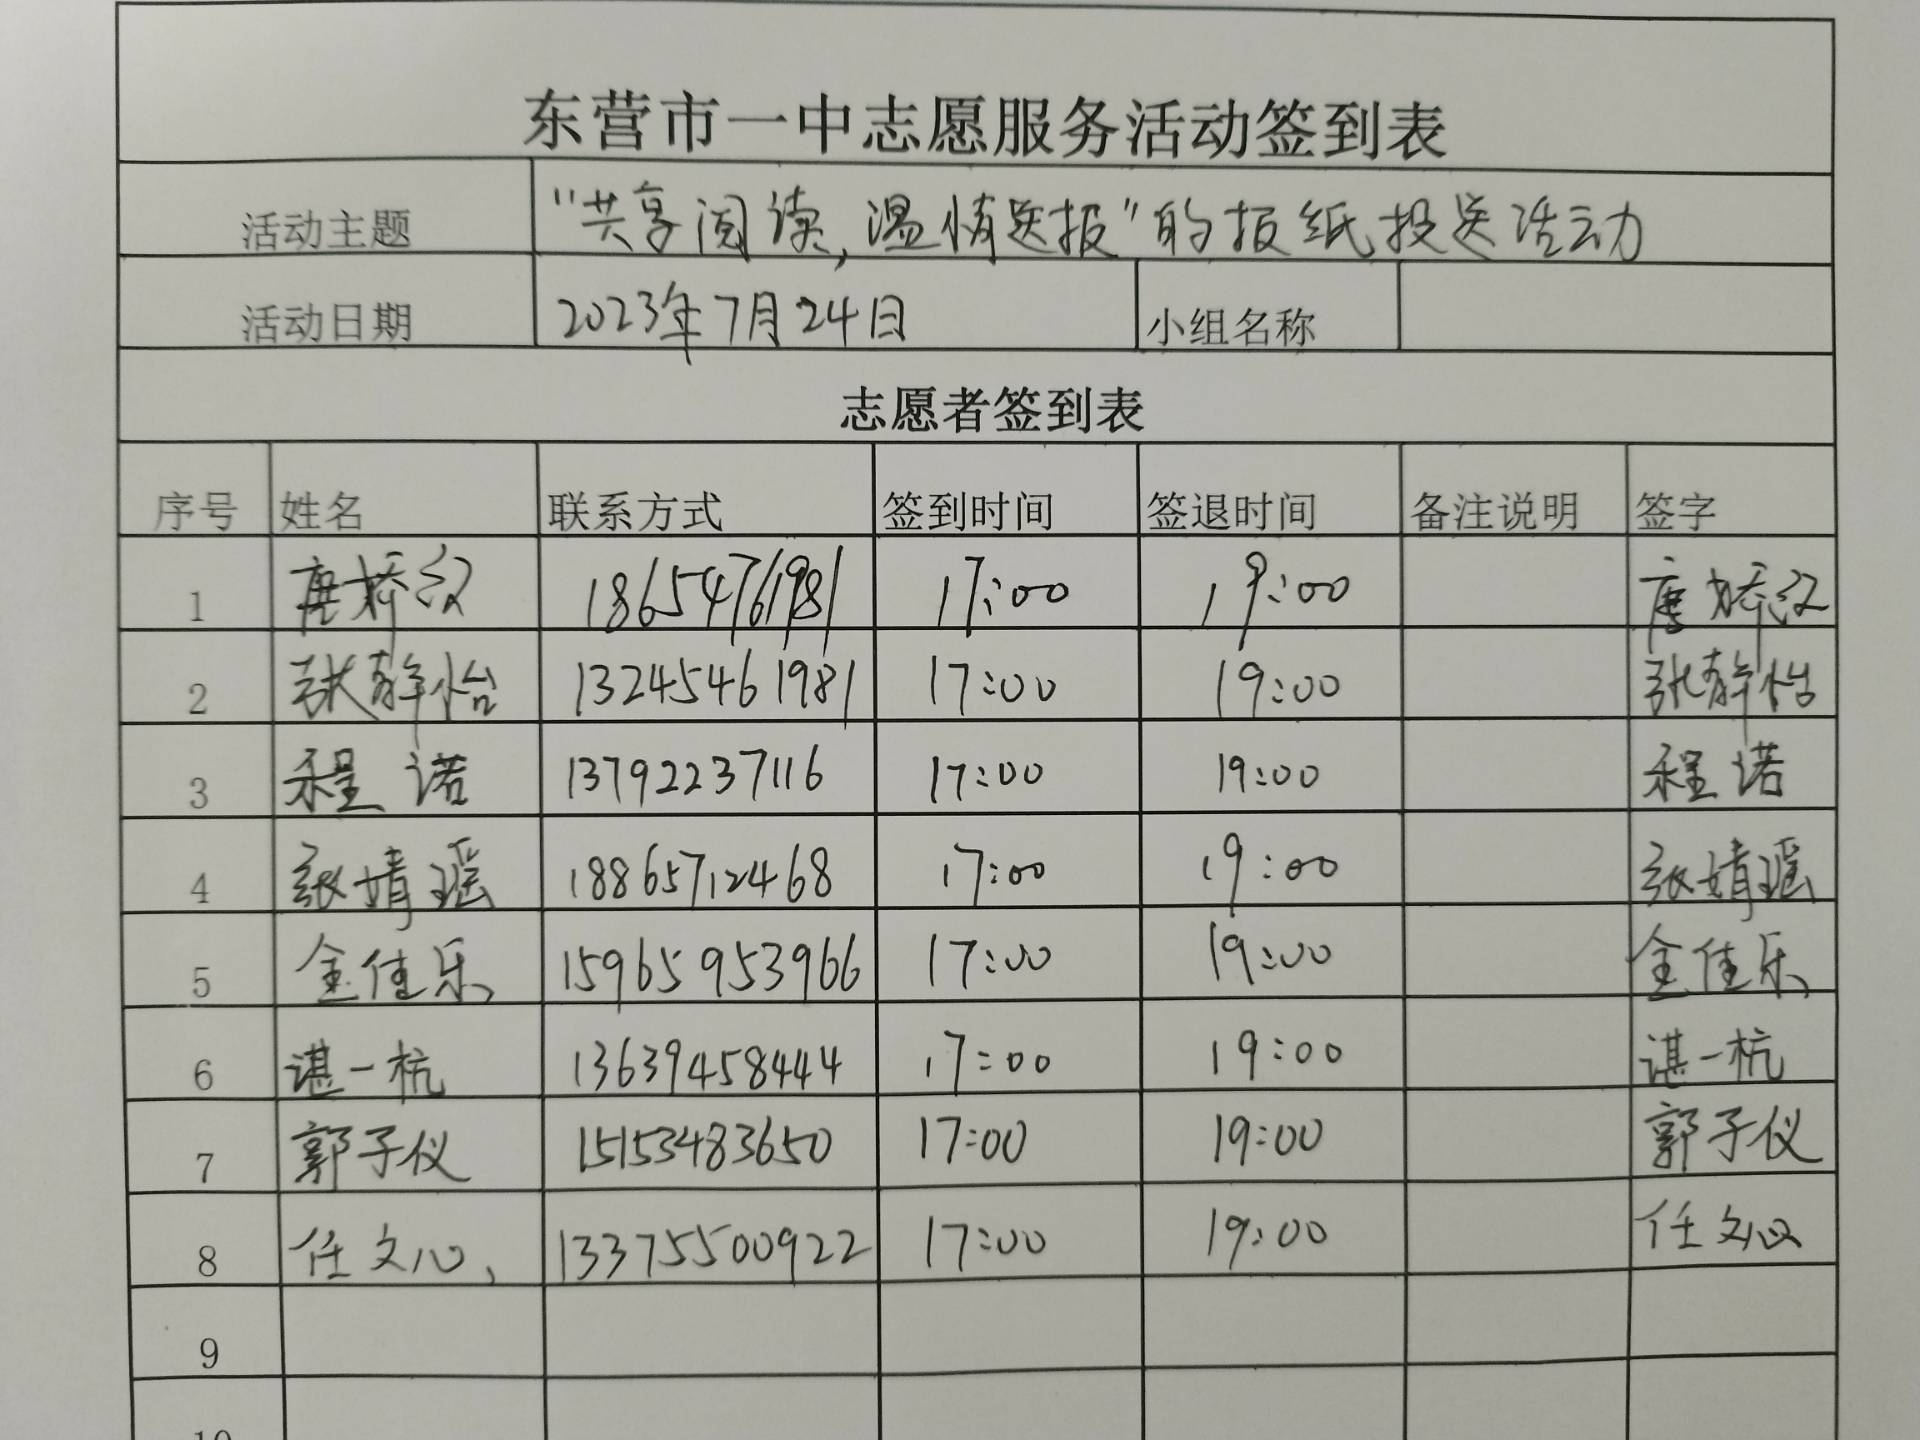 东营市一中志愿服务活动签到表
活动主题 "共享阅读,温情送报"的报纸投送活动
活动日期 2023年7月24日 小组名称
志愿者签到表
序号 姓名 联系方式 签到时间 签退时间 备注说明 签字
1 唐娇汉 18654761981 17:00 19:00 唐娇汉
2 张静怡 13245461981 17:00 19:00 张静怡
3 程诺 13792237116 17:00 19:00 程诺
4 张婧瑶 18865712468 17:00 19:00 张婧瑶
5 金佳乐 15965953966 17:00 19:00 金佳乐
6 谌一杭 13639458444 17:00 19:00 谌一杭
7 郭子仪 15153483650 17:00 19:00 郭子仪
8 任文心 13375500922 17:00 19:00 任文心
9
10